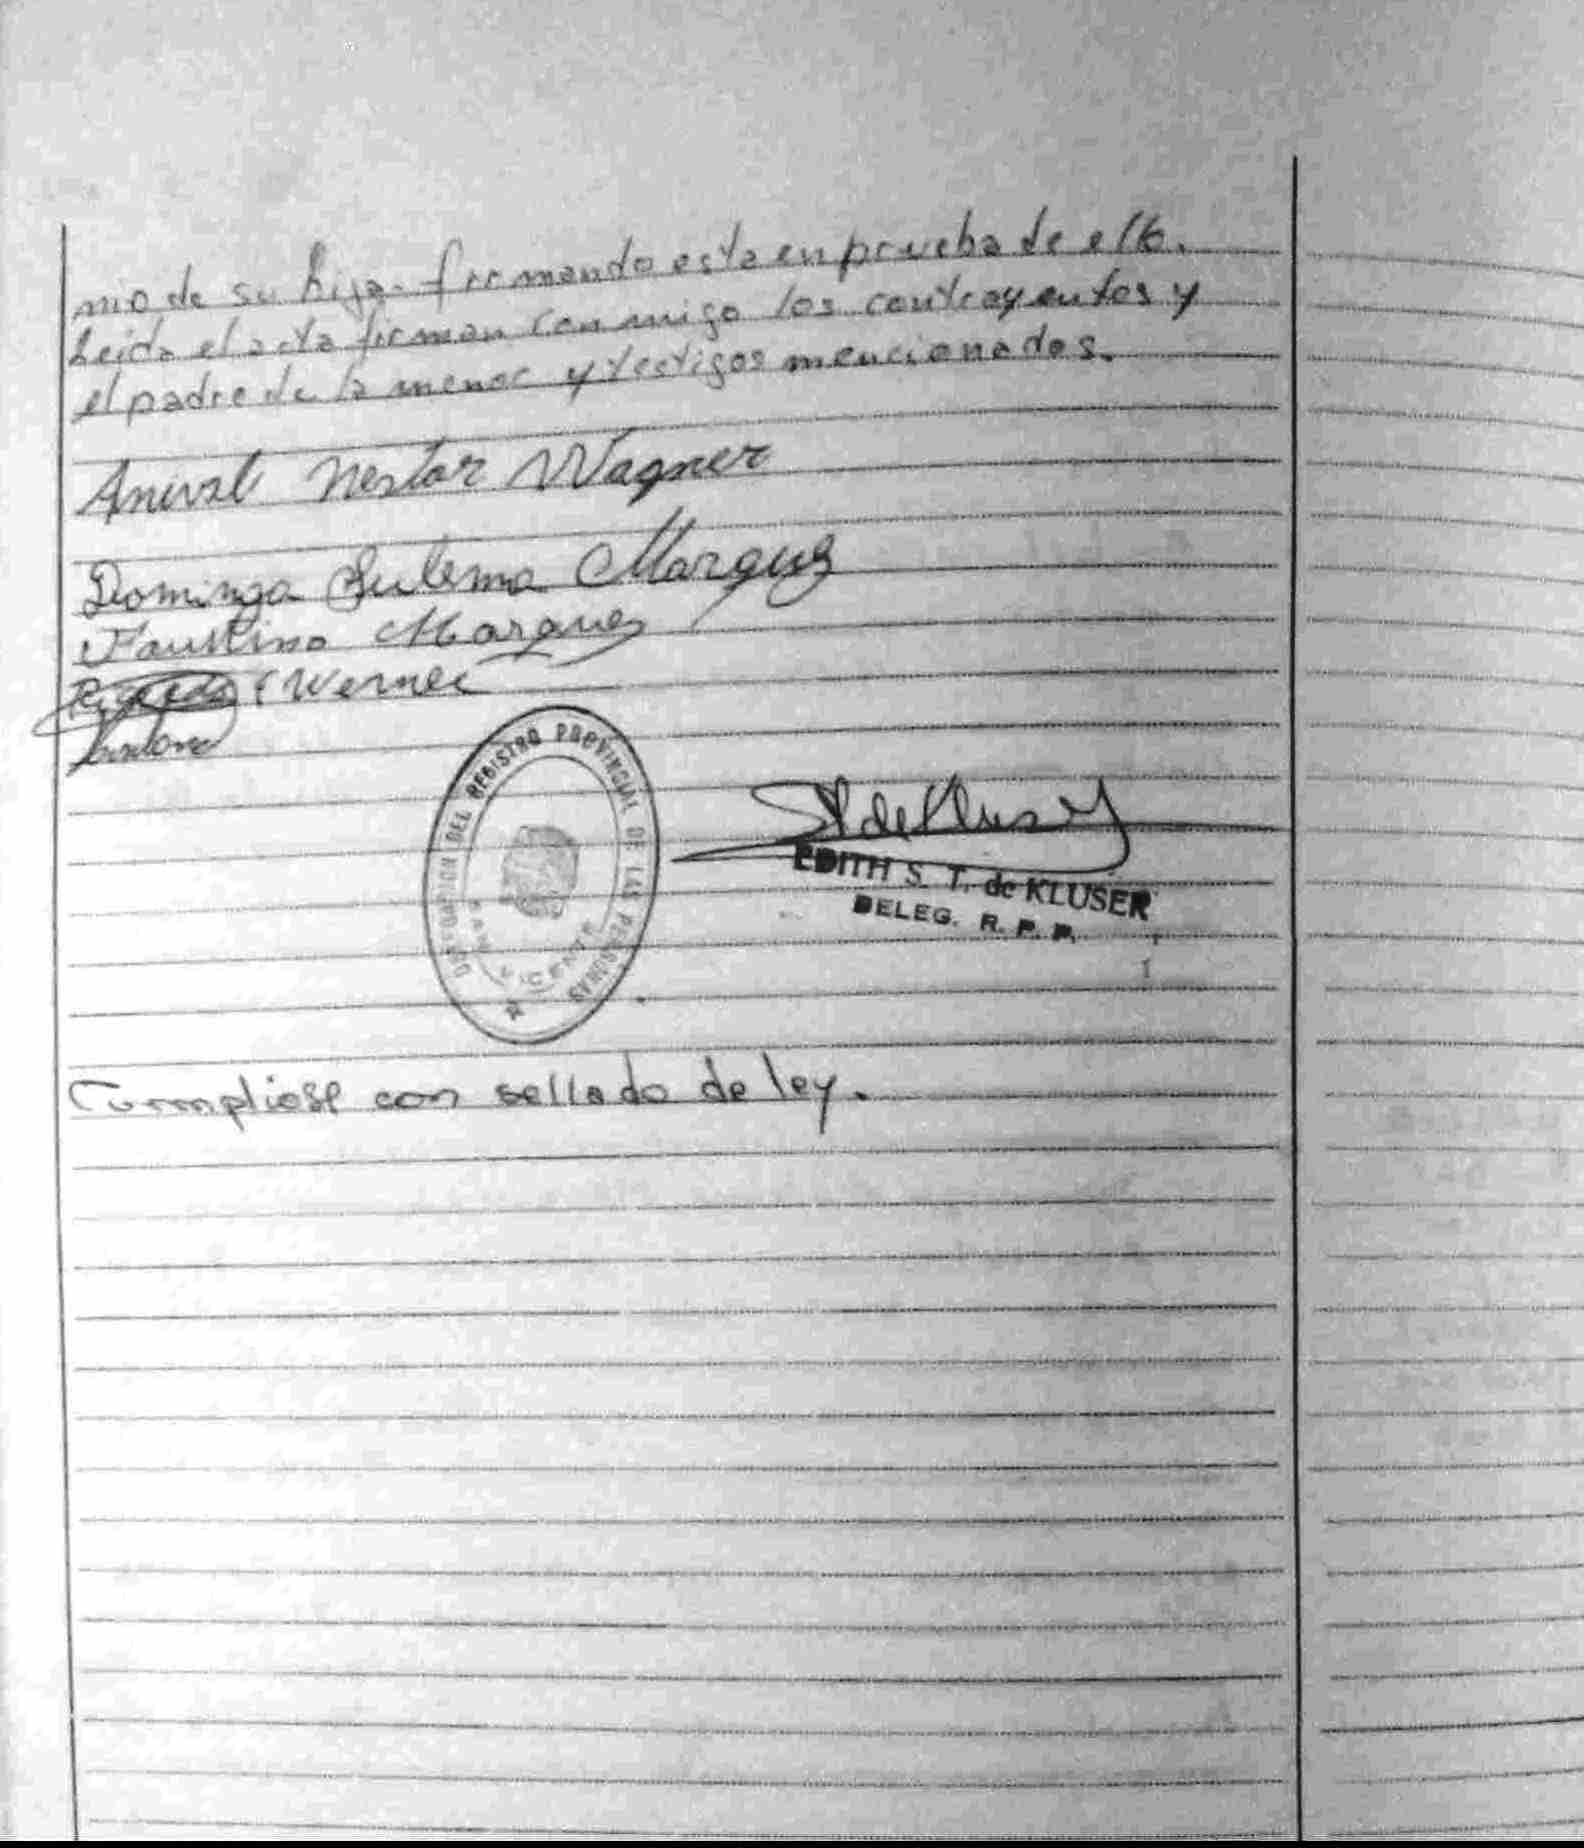 mio de su hija. firmando esta en prueba de ello.
Leida el acta firman con migo los contrayentes y
el padre de la menor y testigos mencionados.
Anival Nestor Wagner
Dominga Sulema Marquez
Faustino Marquez
Werner
DEL REGISTRO PROVINCIAL DE LAS PERSONAS
SAN VICENTE
EDITH S. T. de KLUSER
DELEG. R. P. P.
Cumpliose con sellado de ley.